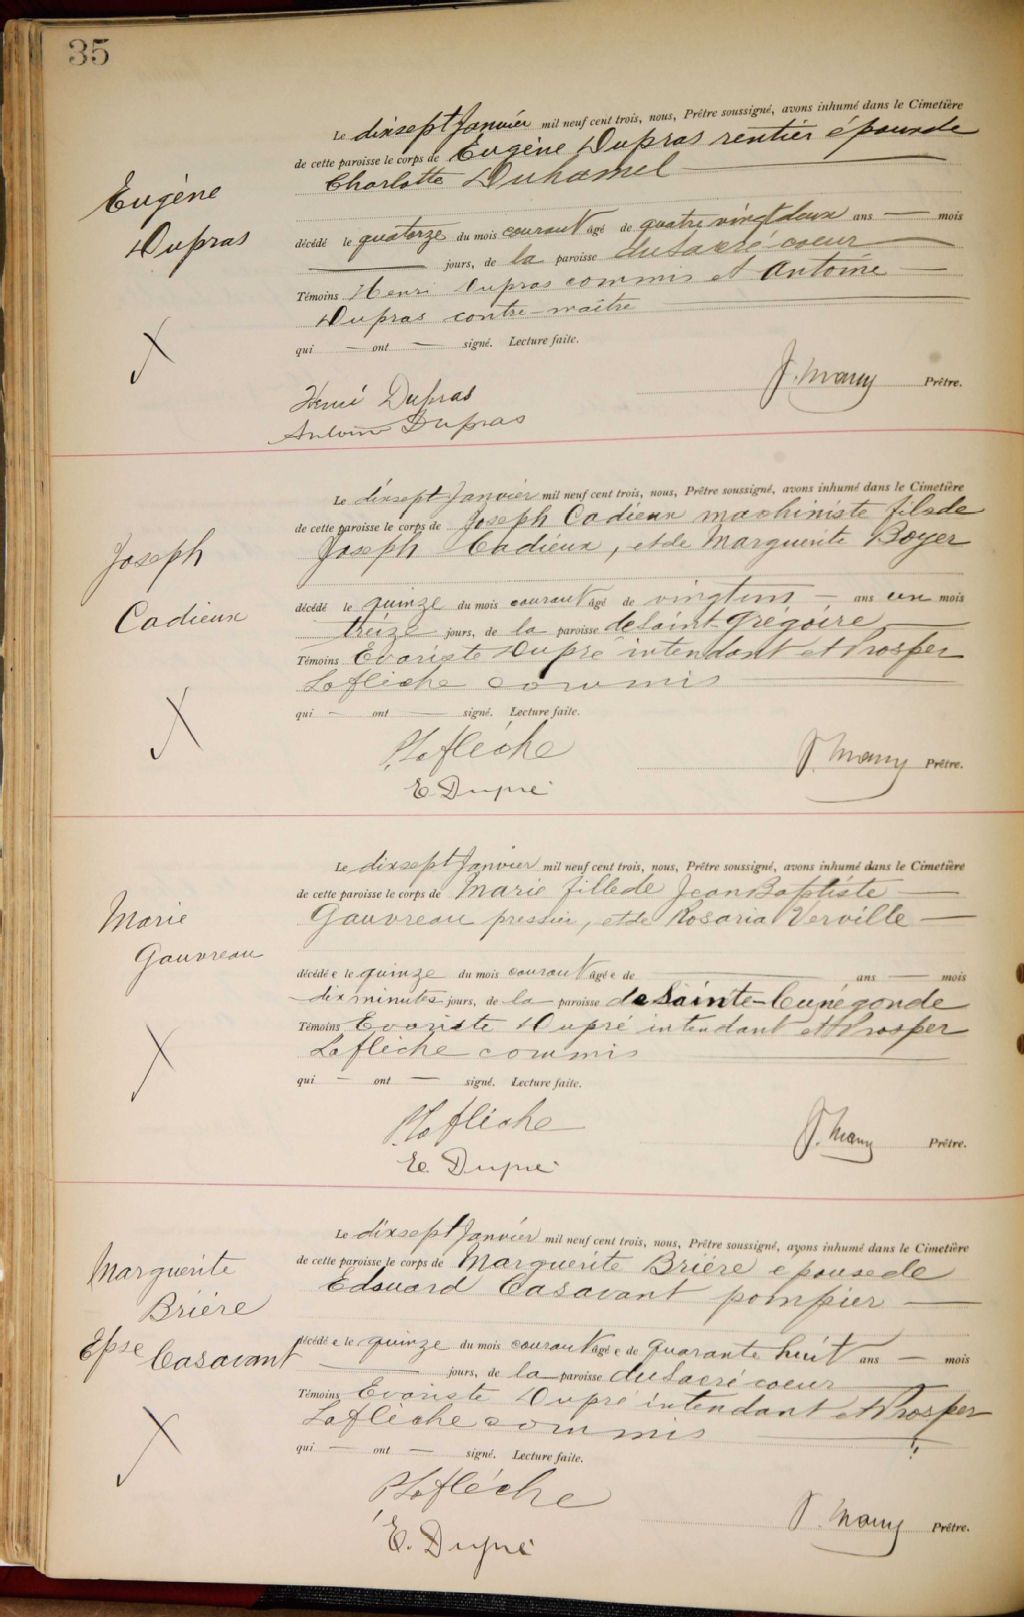 35
Le dixsept Janvier mil neuf cent trois, nous, Prêtre soussigné, avons inhumé dans le Cimetière
de cette paroisse le corps de Eugène Dupras rentier époux de
Charlotte Duhamel
Eugène
Dupras
décédé le quatorze du mois courant âgé de quatre vingt deux ans — mois
— jours, de la paroisse du Sacré-coeur
Témoins Henri Dupras commis et Antoine
Dupras contre-maître
qui — ont — signé. Lecture faite.
J. Marry Prêtre.
Henri Dupras
Antoine Dupras
Le dixsept Janvier mil neuf cent trois, nous, Prêtre soussigné, avons inhumé dans le Cimetière
de cette paroisse le corps de Joseph Cadieux machiniste fils de
Joseph Cadieux, et de Marguerite Boyer
Joseph
Cadieux
décédé le quinze du mois courant âgé de vingt un — ans un mois
treize jours, de la paroisse de Saint-Grégoire
Témoins Evariste Dupré intendant et Prosper
Laflèche commis
qui — ont — signé. Lecture faite.
P. Laflèche
J. Marry Prêtre.
E. Dupré
Le dixsept Janvier mil neuf cent trois, nous, Prêtre soussigné, avons inhumé dans le Cimetière
de cette paroisse le corps de Marie fille de Jean Baptiste —
Gauvreau presseur, et de Rosaria Verville —
Marie
Gauvreau
décédé e le quinze du mois courant âgé e de — ans — mois
dix minutes jours, de la paroisse de Sainte-Cunégonde
Témoins Evariste Dupré intendant et Prosper
Laflèche commis
qui — ont — signé. Lecture faite.
P. Laflèche
J. Marry Prêtre.
E. Dupré
Le dixsept Janvier mil neuf cent trois, nous, Prêtre soussigné, avons inhumé dans le Cimetière
de cette paroisse le corps de Marguerite Brière epouse de
Edouard Casavant pompier —
Marguerite
Brière
Epse Casavant
décédé e le quinze du mois courant âgé e de quarante huit ans — mois
— jours, de la paroisse du Sacré coeur
Témoins Evariste Dupré intendant et Prosper
Laflèche commis
qui — ont — signé. Lecture faite.
P. Laflèche
J. Marry Prêtre.
E. Dupré